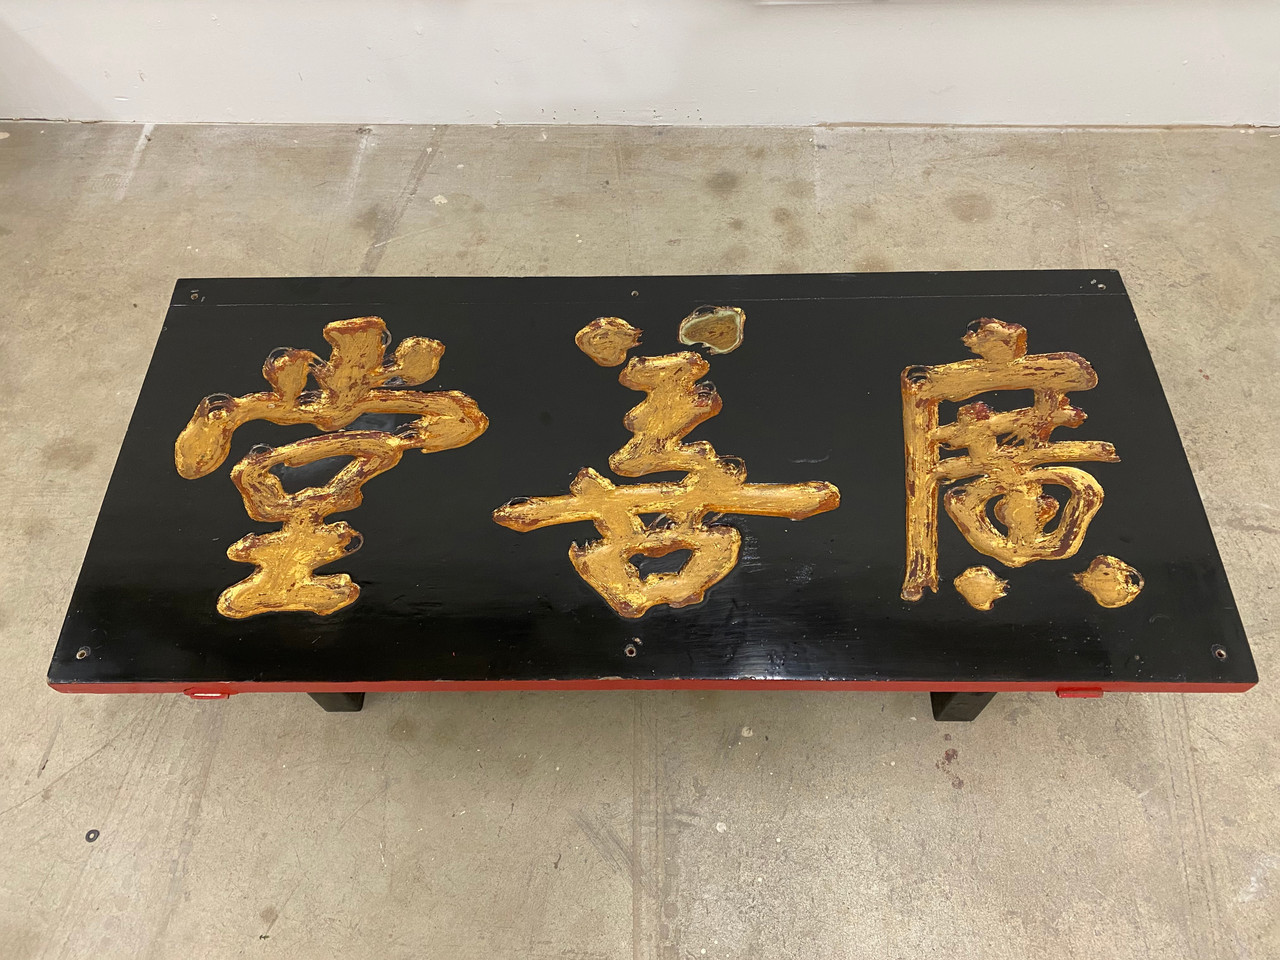 廣善堂